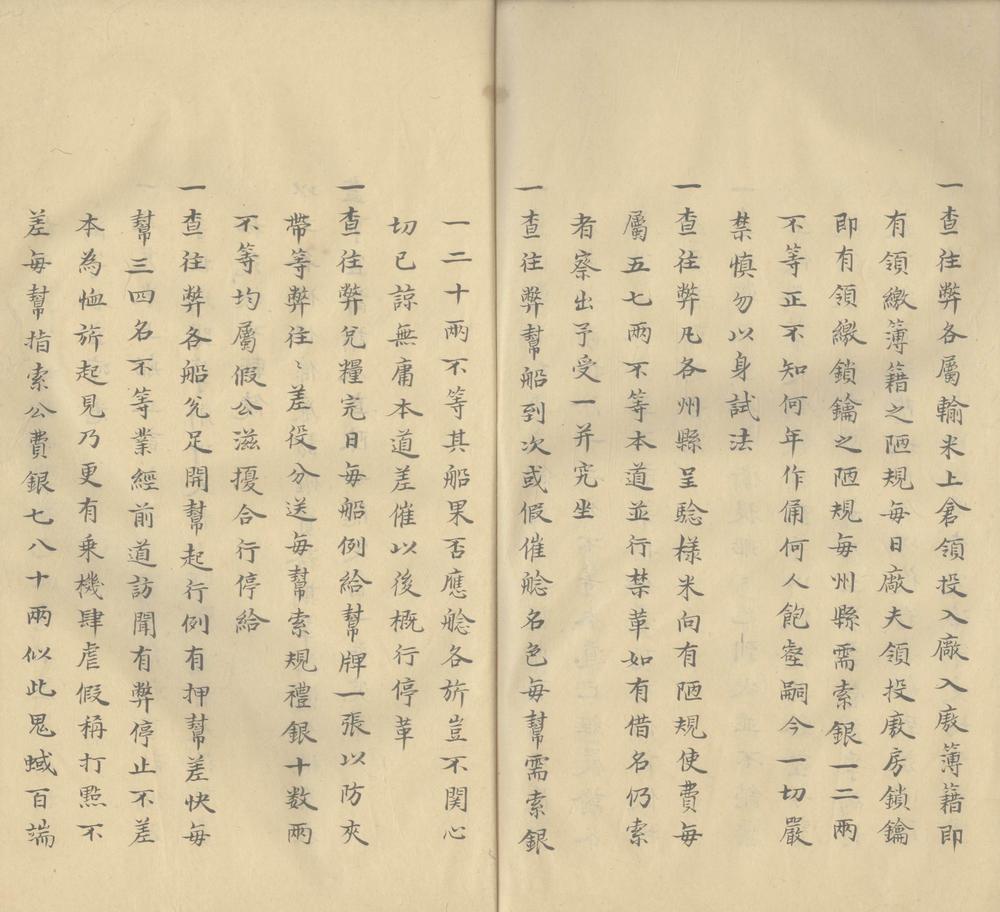 一查往弊各屬輸米上倉領投入廠入廒簿籍即
有領繳簿籍之陋規每日廠夫領投廒房鎖鑰
即有領繳鎖鑰之陋規每州縣需索銀一二兩
不等正不知何年作俑何人飽壑嗣今一切嚴
禁慎勿以身試法
一查往弊凡各州縣呈驗樣米向有陋規使費每
屬五七兩不等本道並行禁革如有借名仍索
者察出予受一并究坐
一查往弊幫船到次或假催艌名色每幫需索銀
一二十兩不等其船果否應艌各旂豈不關心
切已諒無庸本道差催以後概行停革
一查往弊兌糧完日每船例給幫牌一張以防夾
帶等弊往〻差役分送每幫索規禮銀十数兩
不等均屬假公滋擾合行停給
一查往弊各船兌足開幫起行例有押幫差快每
幫三四名不等業經前道訪聞有弊停止不差
本為恤旂起見乃更有乘機肆虐假稱打㸃不
差每幫指索公費銀七八十兩似此鬼蜮百端